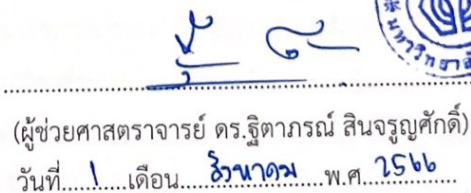 มหาวิทยาลั
(ผู้ช่วยศาสตราจารย์ ดร.ฐิตาภรณ์ สินจรูญศักดิ์)
วันที่.....1.....เดือน.....สิงหาคม.....พ.ศ.2566